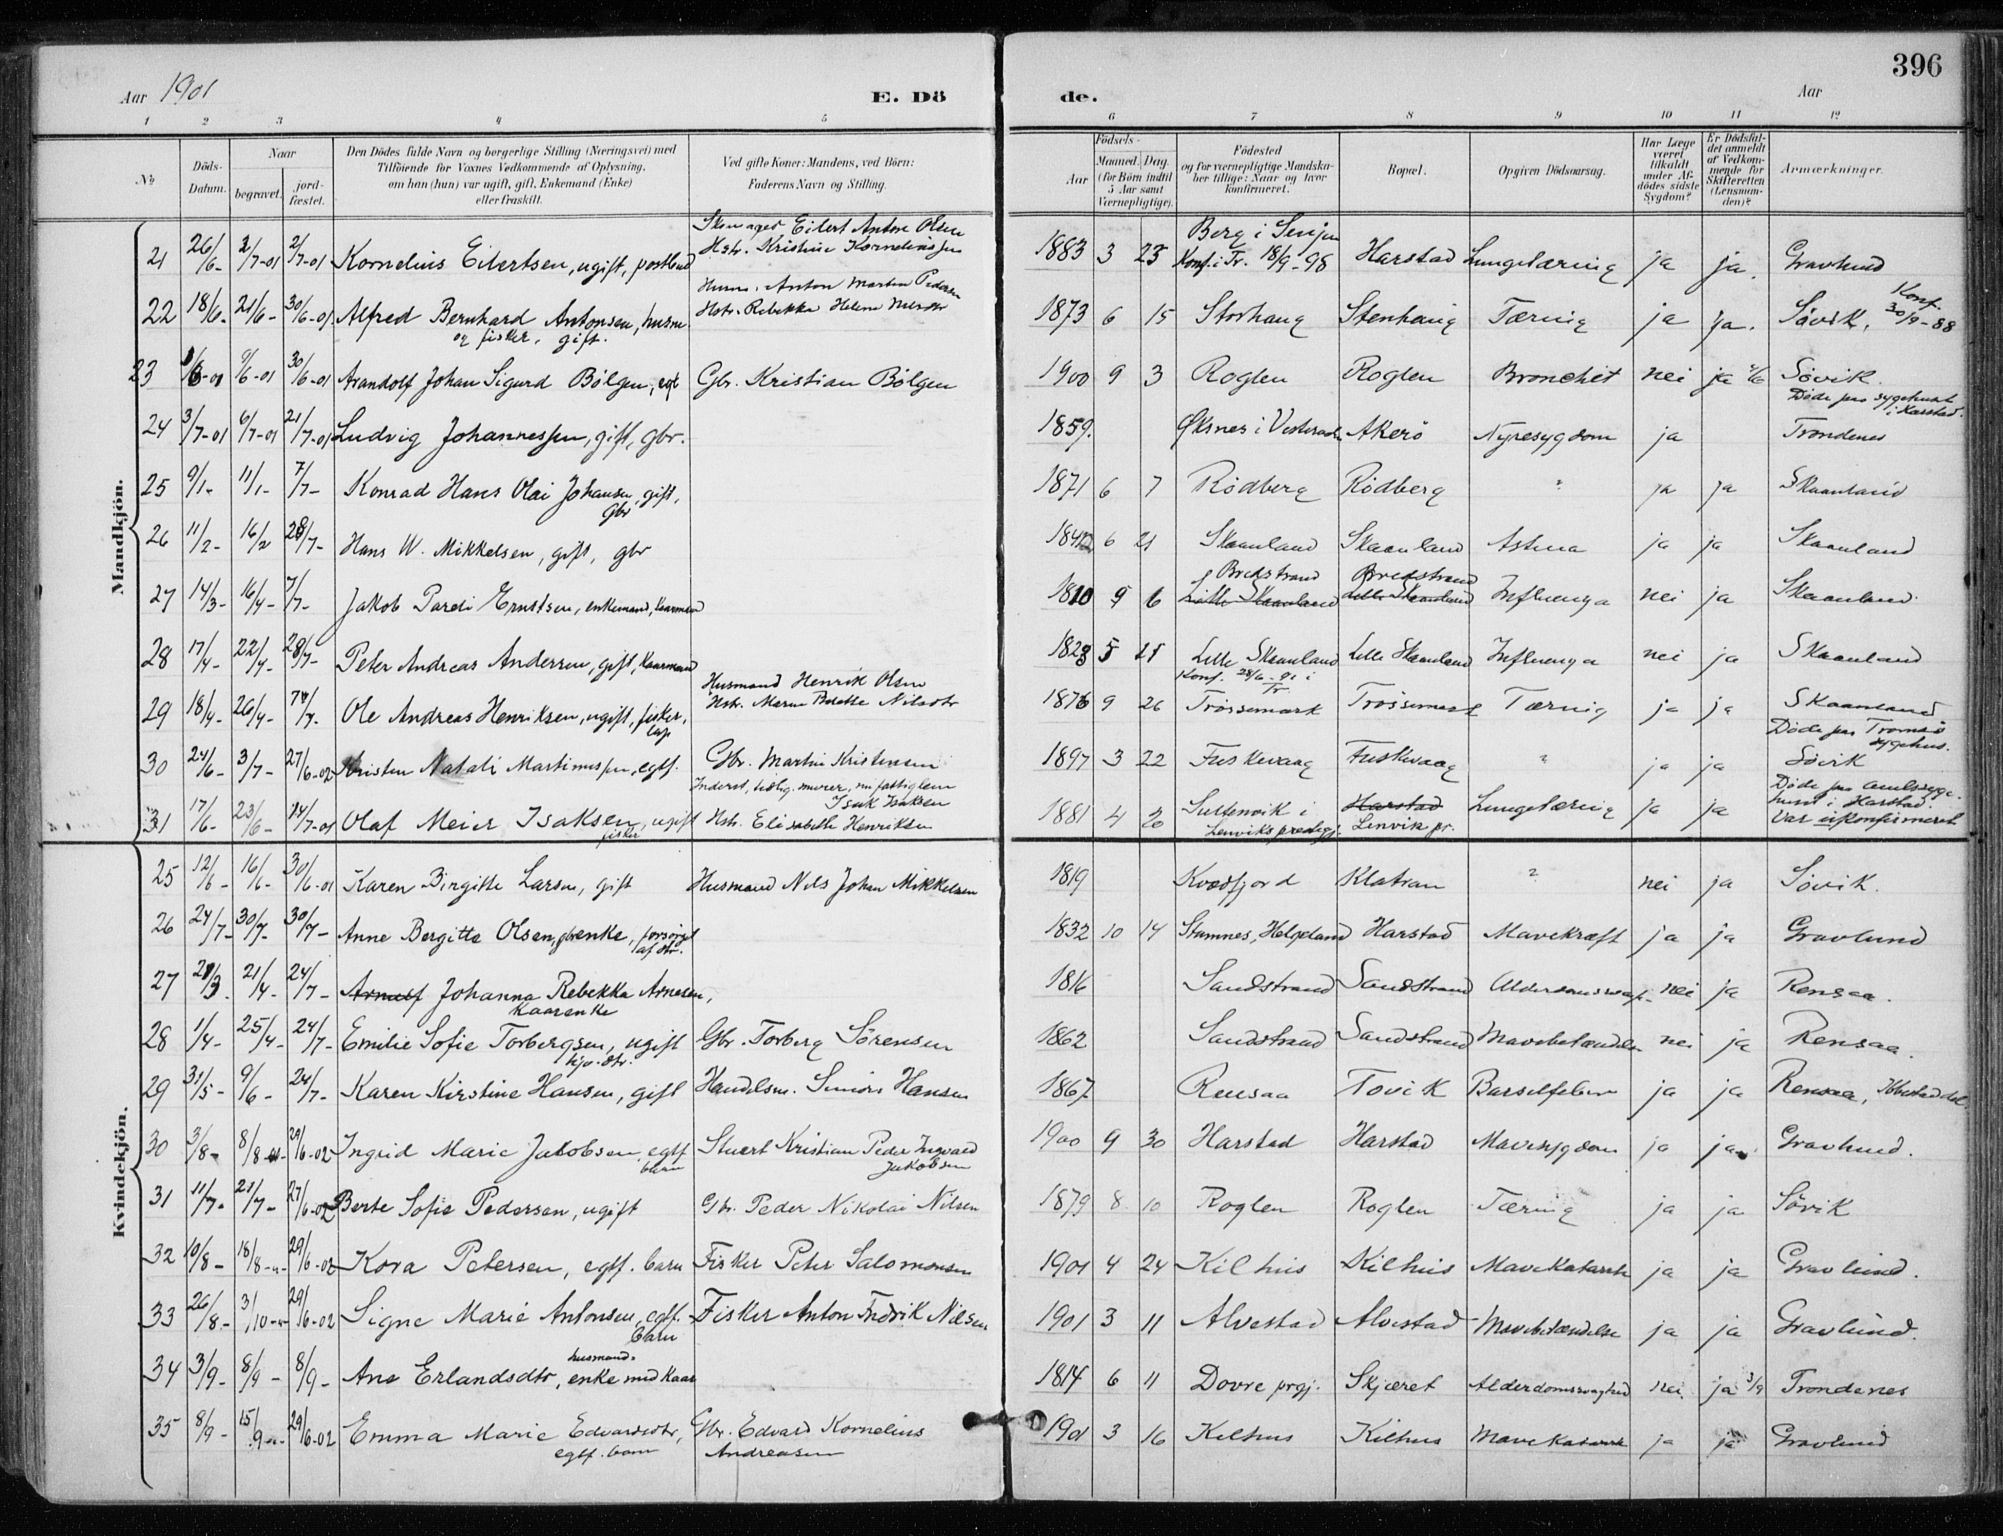 396
Aar 1901
E. Dö
de.
Aar
1 2 3 4 5 6 7 8 9 10 11 12
No
Döds-Datum.
Naar
begravet.
jord-fæstet.
Den Dödes fulde Navn og borgerlige Stilling (Næringsvei) med
Tilföiende for Voxnes Vedkommende af Oplysning,
om han (hun) var ugift, gift, Enkemand (Enke)
eller fraskilt.
Ved gifte Koner: Mandens, ved Börn:
Faderens Navn og Stilling.
Födsels-
Aar
Maaned. Dag.
(for Börn indtil
5 Aar samt
Værnepligtige).
Födested
og for værnepligtige Mandska-
ber tillige: Naar og hvor
konfirmeret.
Bopæl.
Opgiven Dödsaarsag.
Har Læge
været
tilkaldt
under Af-
dödes sidste
Sygdom?
Er Dödsfal-
det anmeldt
af Vedkom-
mende for
Skifteretten
(Lensman-
den)?
Anmærkninger.
Mandkjön.
21 26/6- 2/7-01 2/7-01 Kornelius Eilertsen, ugift, postbud Eilert Anton Olsen Hstr. Kristine Korneliussen 1883 3 23 Berg i Senjen Konf. i Tr. 18/9-98 Harstad Lungetæring ja ja. Gravlund
22 18/6- 21/6- 30/6-01 Alfred Bernhard Antonsen, husm og fisker, gift. Husm. Anton Martin Pedersen Hstr. Rebekka Helene 1873 6 15 Storhaug Stenhaug Tæring ja ja. Sövik, Konf. 30/9-88
23 9/6-01 30/6-01 Arandolf Johan Sigurd Bölgen, egt Gbr. Kristian Bölgen 1900 9 3 Roglen Roglen Bronchit nei ja Sövik.
24 3/7-01 6/7-01 21/7-01 Ludvig Johannessen, gift, gbr. 1859. Øksnes i Vesteraalen Akerö Nyresygdom ja Döde paa sygehuset i Harstad. Trondenes
25 9/1- 11/1- 7/7- Konrad Hans Olai Johansen, gift, Gbr 1871 6 7 Rödberg Rödberg ? ja ja Skaanland
26 11/2- 16/2 28/7- Hans W. Mikkelsen, gift, gbr 1842 6 21 Skaanland Skaanland Astma ja ja Skaanland
27 14/3- 16/4- 7/7- Jakob Pareli Ernstsen, enkemand, kaarmand 1810 9 6 Bredstrand Lille Skaanland Bredstrand Lille Skaanland Influenza nei ja Skaanland.
28 17/4- 22/4- 28/7- Peter Andreas Andersen, gift, kaarmand 1823 5 25 Lille Skaanland Lille Skaanland Influenza nei ja Skaanland
29 18/4- 26/4- 7/7- Ole Andreas Henriksen, ugift, fisker, lap Husmand Henrik Olsen Hstr. Maren Nilsdtr 1876 9 26 Konf. 28/6-91 i Tr Trössemark Trössemark Tæring ja ja Skaanland
30 24/6- 3/7- 27/6-02 Kristen Natali Martinussen, egtf. Gbr. Martin Kristensen 1897 3 22 Fuskevaag Fuskevaag ? ja ja Döde paa Tromsö sygehus. Sövik
31 17/6- 23/6- 14/7-01 Olaf Meier Isaksen, ugift fisker Inderst, tidlig. murer, nu fattiglem Isak Isaksen Hstr. Elisabeth Henriksen 1881 4 20 i Lenviks prestegj. Harstad Lenvik pr. Lungetæring ja ja Döde paa amtssygehuset i Harstad. Var ukonfirmeret
Kvindekjön.
25 12/6- 16/6- 30/6-01 Karen Birgitte Larsen, gift Husmand Nils Johan Mikkelsen 1819 Kvædfjord Klatran ? nei ja Sövik.
26 24/7- 30/7- 30/7- Anne Bergitte Olsen, gbrenke, forsörget af dtr. 1832 10 14 Stamnes, Helgeland Harstad Mavekræft ja ja Gravlund
27 21/4- 24/7- Arnulf Johanna Rebekka Arnesen, Kaarenke 1816 Sandstrand Sandstrand Alderdomssvagh- nei ja Rensaa.
28 1/4- 25/4- 24/7- Emilie Sofie Torbergsen, ugift hjv. dtr. Gbr. Torberg Sörensen 1862 Sandstrand Sandstrand Mavebetændelse nei ja Rensaa.
29 31/5- 9/6- 24/7- Karen Kirstine Hansen, gift Handelsm. Simon Hansen 1867 Rensaa Tovik Barselfeber ja ja Rensaa, Ibbestad del.
30 3/8- 8/8 29/6-02 Ingrid Marie Jakobsen, egtf barn Stuert Kristian Peder Ingvald Jakobsen 1900 9 30 Harstad Harstad Mavesygdom ja ja Gravlund.
31 11/7- 21/7- 27/6-02 Berte Sofie Pedersen, ugift Gbr. Peder Nikolai Nilsen 1879 8 10 Roglen Roglen Tæring ja ja Sövik
32 10/8- 18/8-"- 29/6-02 Kora Petersen, egtf. barn Fisker Peter Salomonsen 1901 4 24 Kilhus Kilhus Mavekatarrh ja ja Gravlund.
33 26/8- 3/10-"- 29/6-02 Signe Marie Antonsen, egtf. barn Fisker Anton Fredrik Nilsen 1901 3 11 Alvestad Alvestad Mavebetændelse ja ja Gravlund.
34 3/9- 8/9- 8/9- Ane Erlandsdtr, husmands enke med kaar 1814 6 11 Dovre prgj. Skjæret Alderdomssvaghed nei ja 3/9 Trondenes
35 8/9- 15/9-"- 29/6-02 Emma Marie Edvardsdtr, egtf. barn Gbr. Edvard Kornelius Andreasen 1901 3 16 Kilhus Kilhus Mavekatarrh ja ja Gravlund